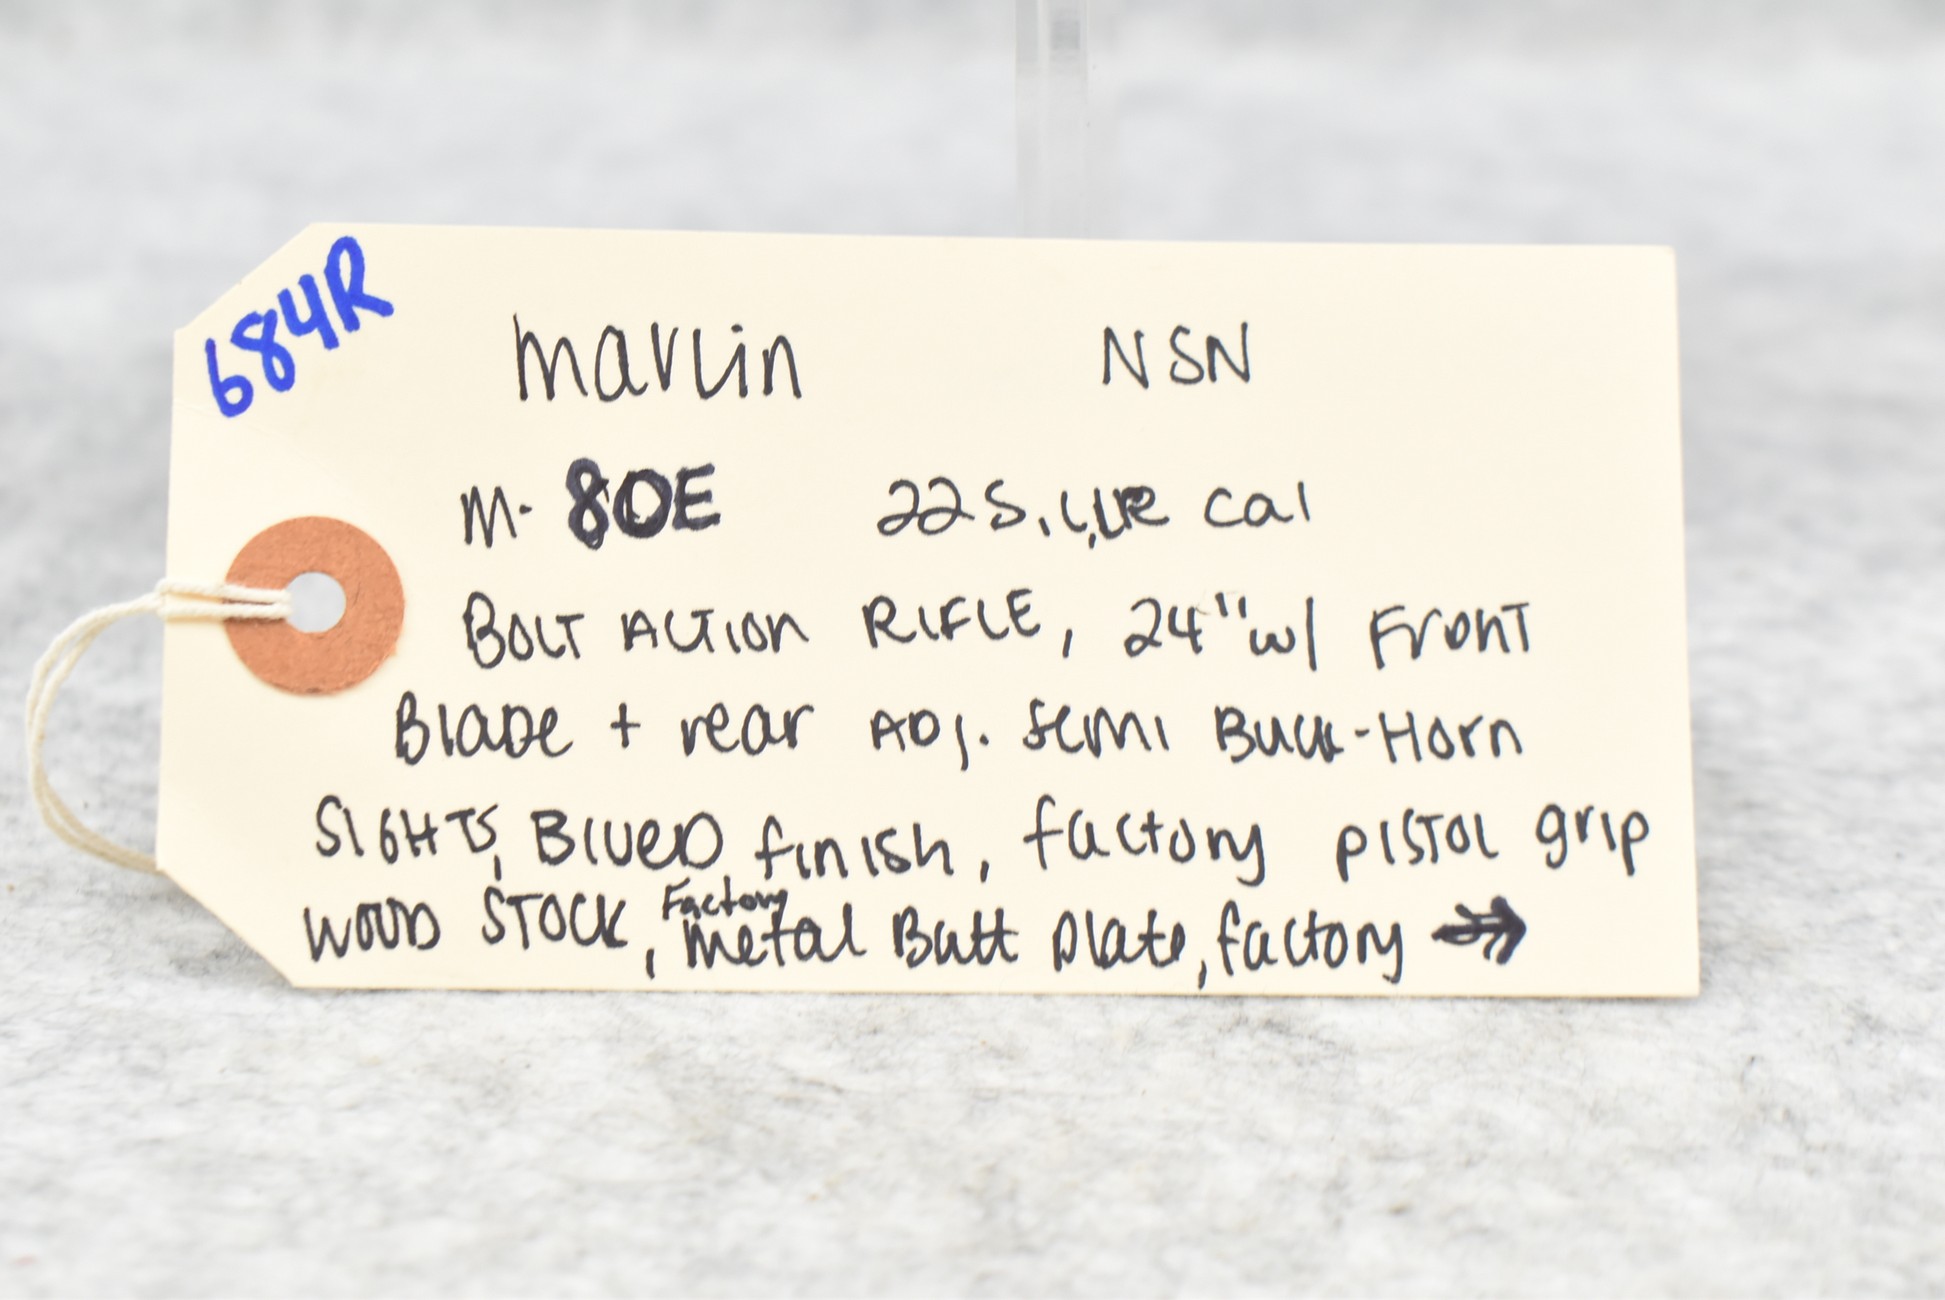 684R
Marlin NSN
M- 80E 22 S, L, LR cal
Bolt Action Rifle, 24" w/ Front
Blade + rear Adj. Semi Buck-Horn
Sights, Blued finish, factory pistol grip
Wood Stock, Factory Metal Butt plate, factory →